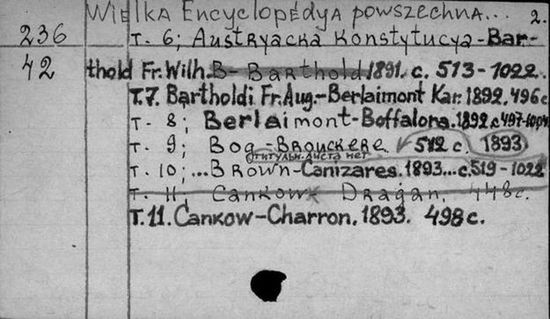 Wielka Encyclopédya powszechna... 2.
236 т. 6; Austryacka Konstytucya-Bar-
42 thold Fr. Wilh. B-Barthold 1891. c. 513-1022.
т. 7. Bartholdi Fr. Aug.-Berlaimont Kar. 1892. 496c.
т. 8; Berlaimont-Boffalora. 1892. c 497-
т. 9; Bog-Brouckere. 512 c. 1893
титульн. листа нет
т. 10; ...Brown-Canizares. 1893... c. 519-1022
т. 11, Cankow Dragan, 448c.
т. 11. Cankow-Charron. 1893. 498c.